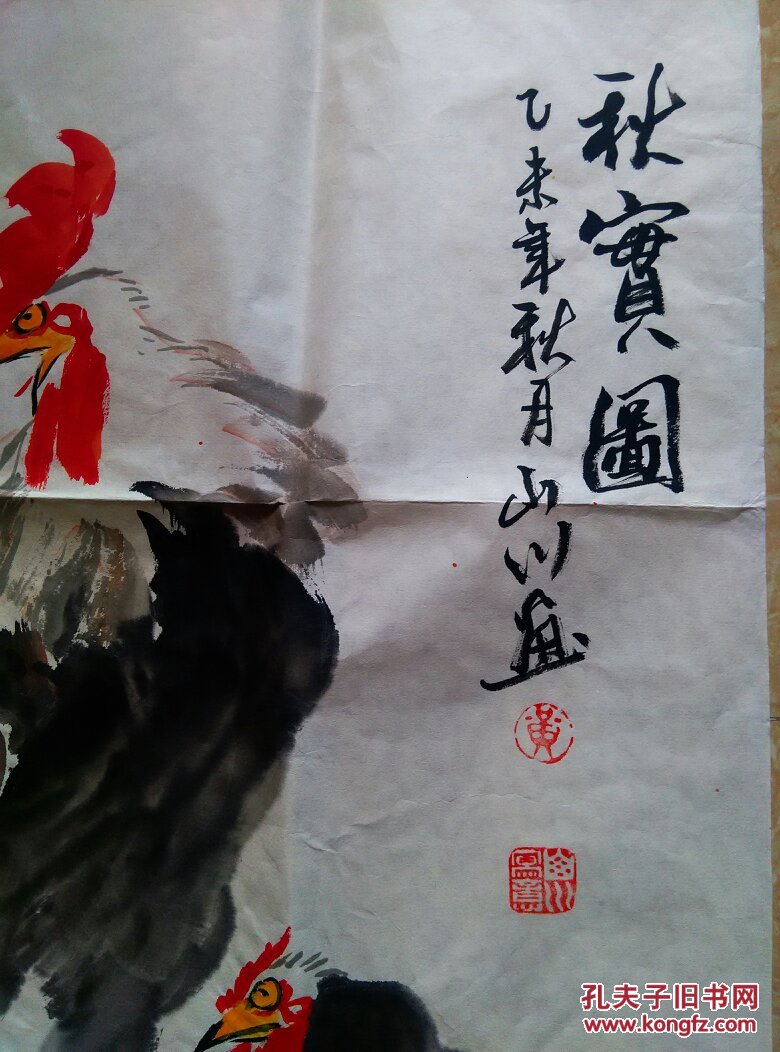 秋實圖
乙未年秋月山川畫
黃
孔夫子旧书网
www.kongfz.com